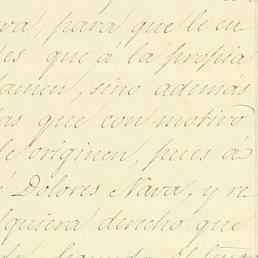 va, para que le en
es que á la propia
tamen, sino además
as que con motivo
le originen, pues á
Dolores Nava, y re
lquiera derecho que